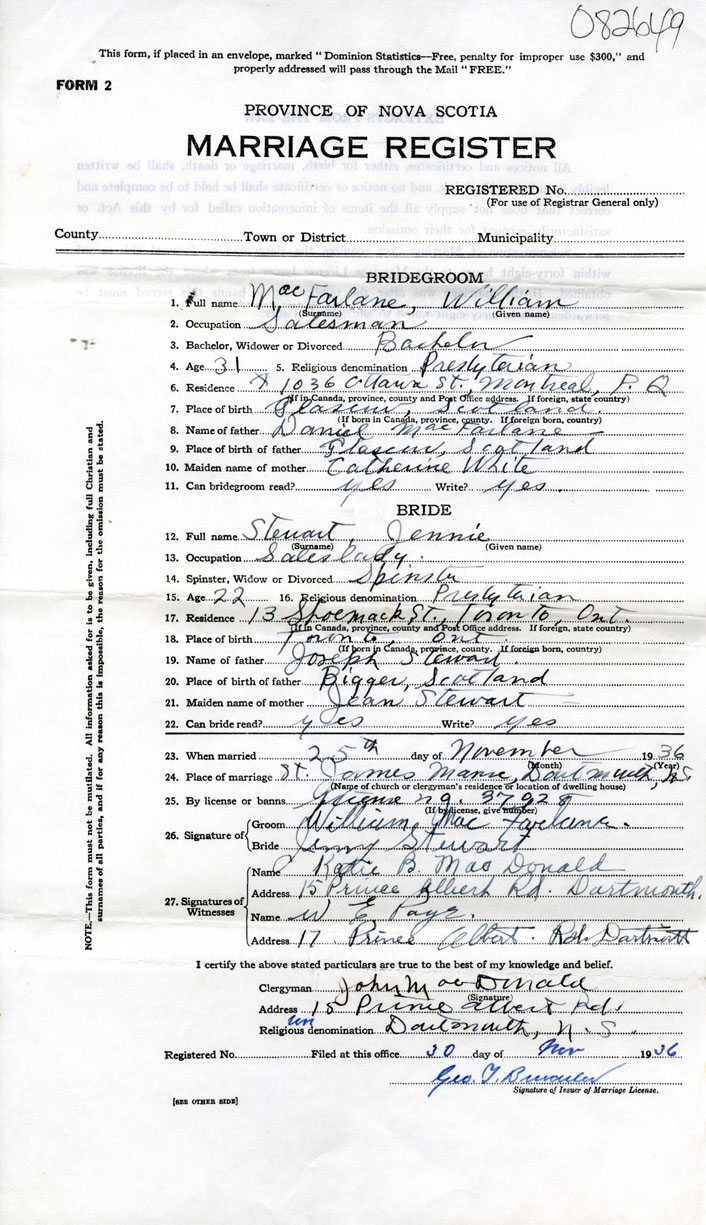 082649
This form, if placed in an envelope, marked "Dominion Statistics—Free, penalty for improper use $300," and
properly addressed will pass through the Mail "FREE."
FORM 2
PROVINCE OF NOVA SCOTIA
MARRIAGE REGISTER
REGISTERED No.
(For use of Registrar General only)
County Town or District Municipality
BRIDEGROOM
1. Full name MacFarlane, William
(Surname) (Given name)
2. Occupation Salesman
3. Bachelor, Widower or Divorced Bachelor
4. Age 31 5. Religious denomination Presbyterian
6. Residence X 1036 Ottawa St., Montreal, P.Q
(If in Canada, province, county and Post Office address. If foreign, state country)
7. Place of birth Glascow, Scotland.
(If born in Canada, province, county. If foreign born, country)
8. Name of father Daniel MacFarlane
9. Place of birth of father Glascow, Scotland
10. Maiden name of mother Catherine White
11. Can bridegroom read? yes Write? yes.
BRIDE
12. Full name Stewart, Jennie
(Surname) (Given name)
13. Occupation Saleslady.
14. Spinster, Widow or Divorced Spinster
15. Age 22 16. Religious denomination Presbyterian
17. Residence 13 Shoemack St., Toronto, Ont.
(If in Canada, province, county and Post Office address. If foreign, state country)
18. Place of birth Toronto, Ont
(If born in Canada, province, county. If foreign born, country)
19. Name of father Joseph Stewart.
20. Place of birth of father Bigger, Scotland
21. Maiden name of mother Jean Stewart
22. Can bride read? yes Write? yes
23. When married 25th day of November 1936
(Month) (Year)
24. Place of marriage St. James Manse, Dartmouth, N.S
(Name of church or clergyman's residence or location of dwelling house)
25. By license or banns License no. 37928
(If by license, give number)
26. Signature of
Groom William MacFarlane.
Bride Jenny Stewart
27. Signatures of Witnesses
Name Katie B. MacDonald
Address 15 Prince Albert Rd. Dartmouth.
Name W E Page.
Address 17 Prince Albert Rd. Dartmouth
I certify the above stated particulars are true to the best of my knowledge and belief.
Clergyman John MacDonald
(Signature)
Address 15 Prince Albert Rd.
Religious denomination Dartmouth, N.S.
Registered No. Filed at this office 30 day of Nov 1936
Geo. T.
Signature of Issuer of Marriage License.
[SEE OTHER SIDE]
NOTE.—This form must not be mutilated. All information asked for is to be given, including full Christian and
surnames of all parties, and if for any reason this is impossible, the reason for the omission must be stated.